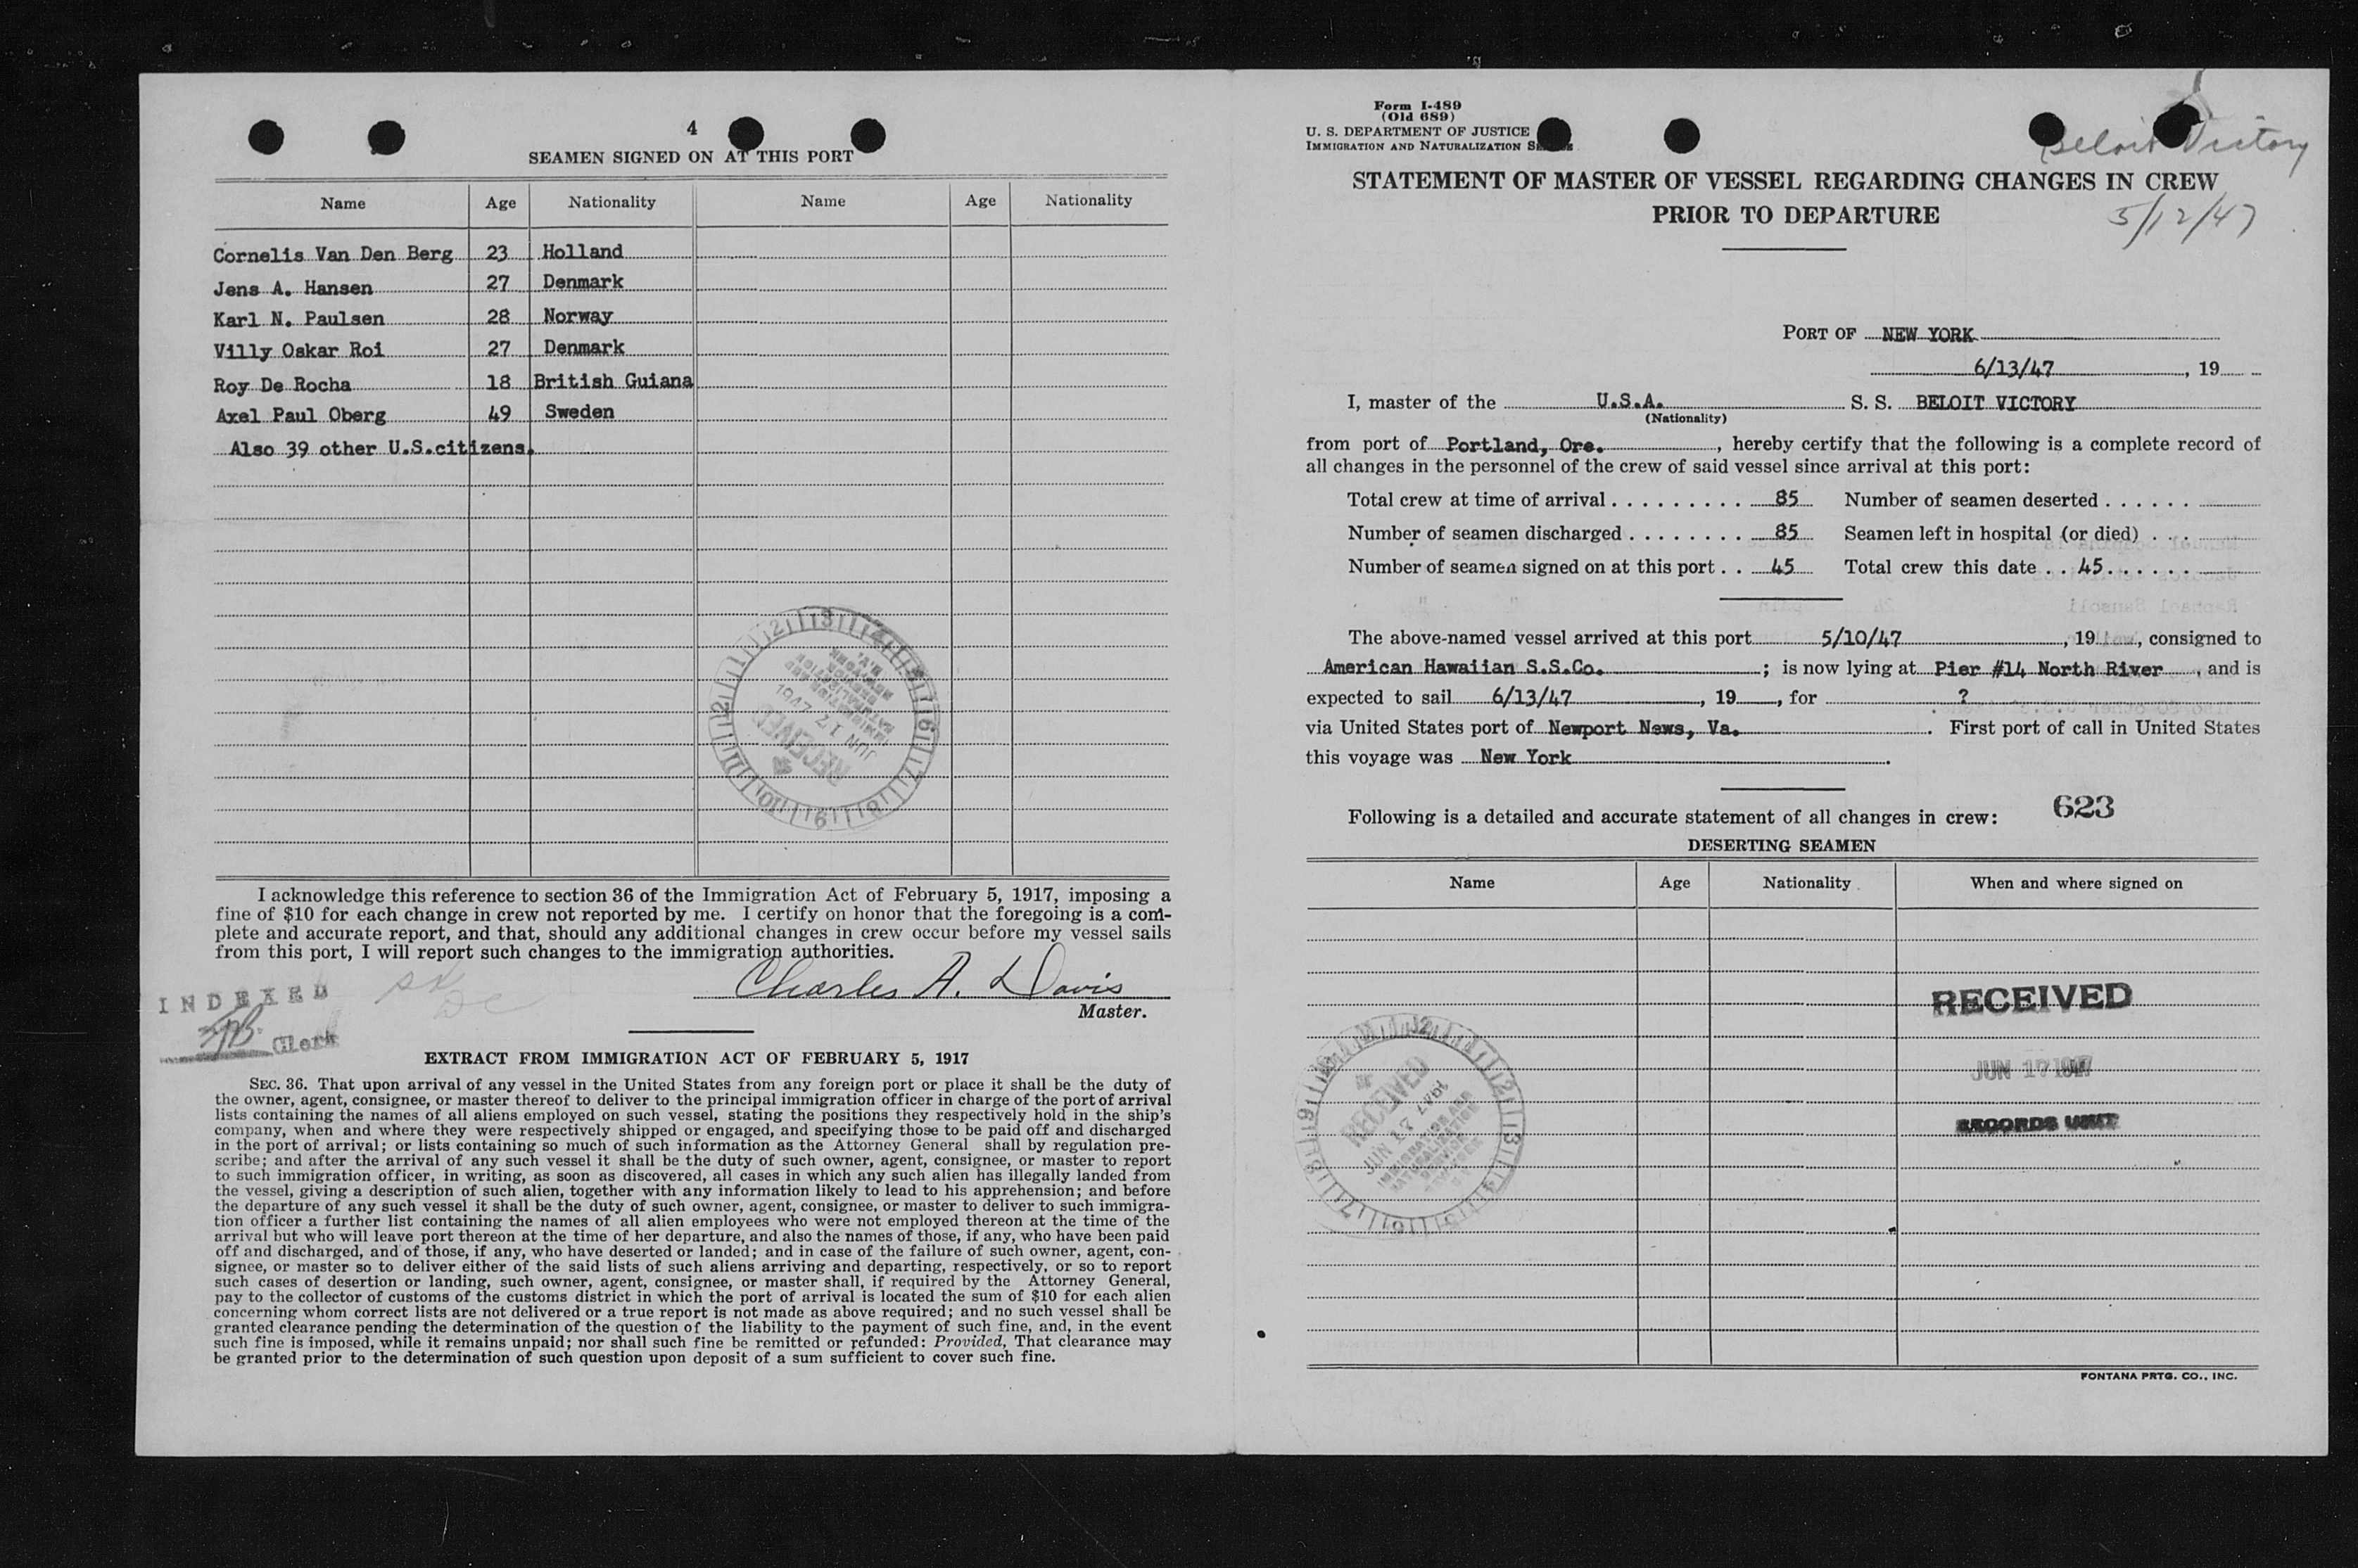 4
SEAMEN SIGNED ON AT THIS PORT
Name Age Nationality Name Age Nationality
Cornelis Van Den Berg 23 Holland
Jens A. Hansen 27 Denmark
Karl N. Paulsen 28 Norway
Villy Oskar Roi 27 Denmark
Roy De Rocha 18 British Guiana
Axel Paul Oberg 49 Sweden
Also 39 other U.S.citizens.
RECEIVED
JUN 17 1947
I acknowledge this reference to section 36 of the Immigration Act of February 5, 1917, imposing a
fine of $10 for each change in crew not reported by me. I certify on honor that the foregoing is a com-
plete and accurate report, and that, should any additional changes in crew occur before my vessel sails
from this port, I will report such changes to the immigration authorities.
Charles A. Davis
Master.
INDEXED
Clerk
EXTRACT FROM IMMIGRATION ACT OF FEBRUARY 5, 1917
SEC. 36. That upon arrival of any vessel in the United States from any foreign port or place it shall be the duty of
the owner, agent, consignee, or master thereof to deliver to the principal immigration officer in charge of the port of arrival
lists containing the names of all aliens employed on such vessel, stating the positions they respectively hold in the ship's
company, when and where they were respectively shipped or engaged, and specifying those to be paid off and discharged
in the port of arrival; or lists containing so much of such information as the Attorney General shall by regulation pre-
scribe; and after the arrival of any such vessel it shall be the duty of such owner, agent, consignee, or master to report
to such immigration officer, in writing, as soon as discovered, all cases in which any such alien has illegally landed from
the vessel, giving a description of such alien, together with any information likely to lead to his apprehension; and before
the departure of any such vessel it shall be the duty of such owner, agent, consignee, or master to deliver to such immigra-
tion officer a further list containing the names of all alien employees who were not employed thereon at the time of the
arrival but who will leave port thereon at the time of her departure, and also the names of those, if any, who have been paid
off and discharged, and of those, if any, who have deserted or landed; and in case of the failure of such owner, agent, con-
signee, or master so to deliver either of the said lists of such aliens arriving and departing, respectively, or so to report
such cases of desertion or landing, such owner, agent, consignee, or master shall, if required by the Attorney General,
pay to the collector of customs of the customs district in which the port of arrival is located the sum of $10 for each alien
concerning whom correct lists are not delivered or a true report is not made as above required; and no such vessel shall be
granted clearance pending the determination of the question of the liability to the payment of such fine, and, in the event
such fine is imposed, while it remains unpaid; nor shall such fine be remitted or refunded: Provided, That clearance may
be granted prior to the determination of such question upon deposit of a sum sufficient to cover such fine.
Form I-489
(Old 689)
U. S. DEPARTMENT OF JUSTICE
IMMIGRATION AND NATURALIZATION
Beloit Victory
STATEMENT OF MASTER OF VESSEL REGARDING CHANGES IN CREW
PRIOR TO DEPARTURE
5/12/47
PORT OF NEW YORK
6/13/47, 19
I, master of the U.S.A. S. S. BELOIT VICTORY
(Nationality)
from port of Portland, Ore., hereby certify that the following is a complete record of
all changes in the personnel of the crew of said vessel since arrival at this port:
Total crew at time of arrival . . . . . . . . . 85 Number of seamen deserted . . . . . .
Number of seamen discharged . . . . . . . . 85 Seamen left in hospital (or died) . . .
Number of seamen signed on at this port . . 45 Total crew this date . . 45 . . . . . .
The above-named vessel arrived at this port 5/10/47, 19, consigned to
American Hawaiian S.S.Co.; is now lying at Pier #14 North River, and is
expected to sail 6/13/47, 19, for ?
via United States port of Newport News, Va. First port of call in United States
this voyage was New York.
Following is a detailed and accurate statement of all changes in crew: 623
DESERTING SEAMEN
Name Age Nationality When and where signed on
RECEIVED
JUN 17 1947
RECORDS UNIT
RECEIVED
JUN 17 1947
IMMIGRATION AND
NATURALIZATION
SERVICE
FONTANA PRTG. CO., INC.